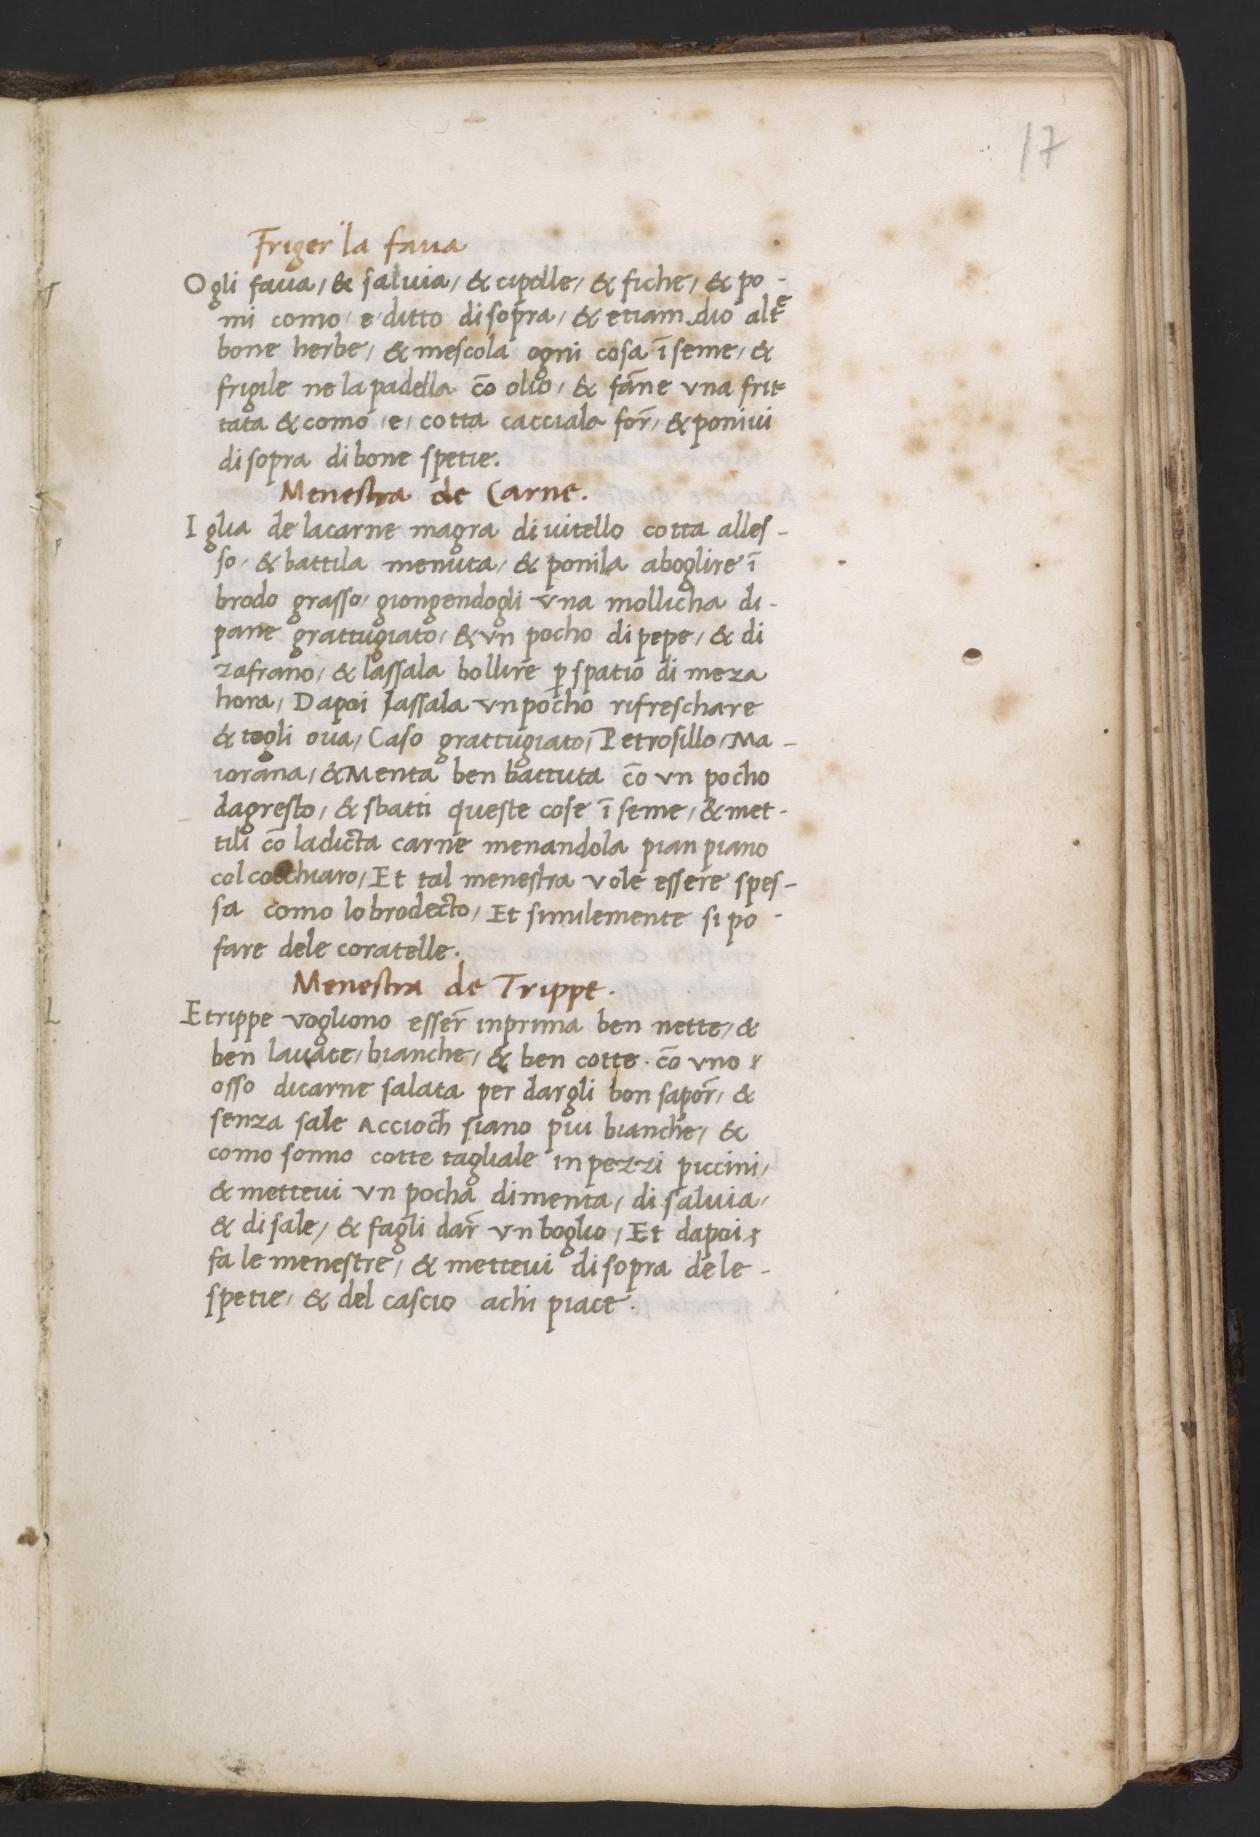 17
Friger la faua
Ogli faua, & saluia, & cipolle, & fiche, & po-
mi como e ditto disopra, & etiam dio altᵉ
bone herbe, & mescola ogni cosa ī seme, &
frigile ne la padella cō olio, & fāne vna frit
tata & como, e, cotta cacciala for̄, & poniui
disopra dibone spetie.
Menestra de Carne.
Iglia de lacarne magra di uitello cotta alles-
so, & battila menuta, & ponila aboglire ī
brodo grasso, giongendogli vna mollicha di-
pane grattugiato, & vn pocho di pepe, & di
zafrano, & lassala bollire ꝑ spatio di meza
hora, Dapoi lassala vnpocho rifreschare
& togli oua, Caso grattugiato, Petrosillo, Ma-
iorana, & Menta ben battuta cō vn pocho
dagresto, & sbatti queste cose ī seme, & met-
tili cō ladicta carne menandola pian piano
col cocchiaro, Et tal menestra vole essere spes-
sa como lo brodecto, Et similemente si po-
fare dele coratelle.
Menestra de Trippe.
Etrippe vogliono esser̄ inprima ben nette, &
ben lauate, bianche, & ben cotte. cō uno
osso dicarne salata per dargli bon sapor̄, &
senza sale Accioch̄ siano piu bianche, &
como sonno cotte tagliale in pezzi piccini,
& metteui vn pocha dimenta, di saluia,
& di sale, & fagli dar̄ vn boglio, Et dapoi
fa le menestre, & metteui disopra de le-
spetie, & del cascio achi piace.